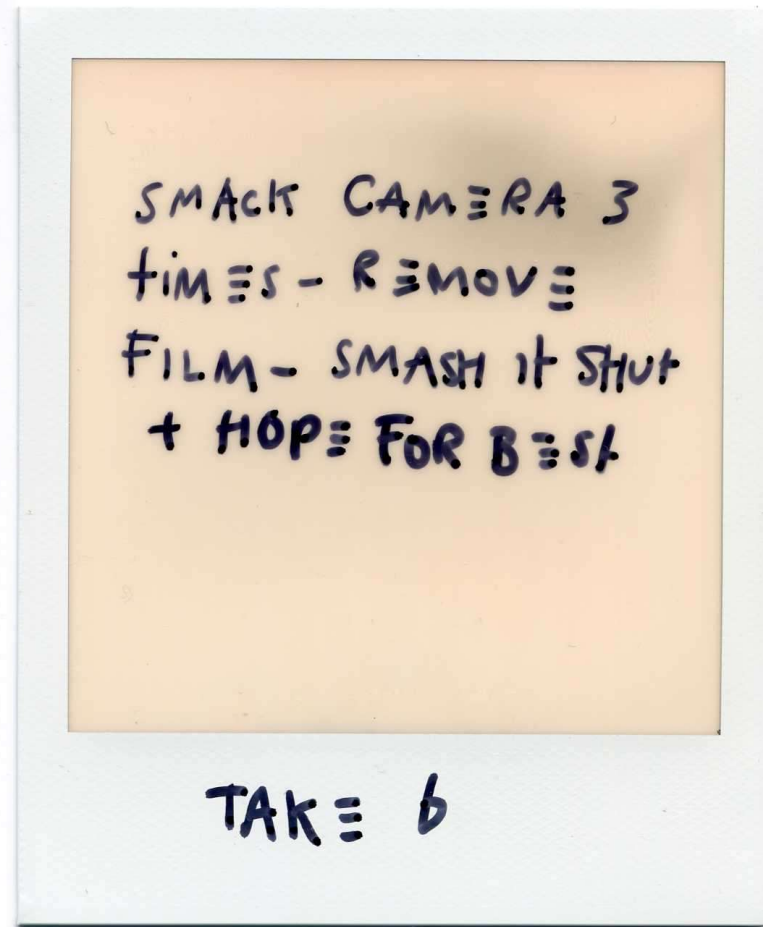 SMACK CAMERA 3
tiMES - REMOVE
FILM - SMASH it SHUt
+ HOPE FOR BESt
TAKE 6